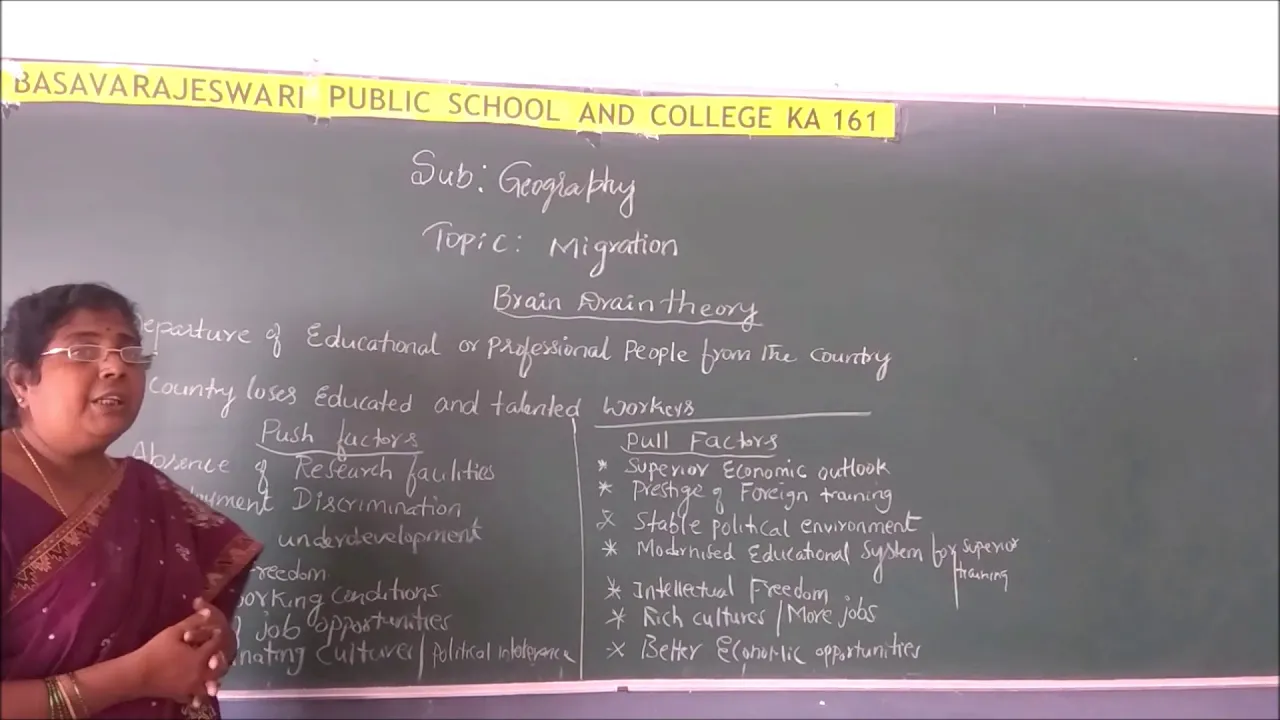 BASAVARAJESWARI PUBLIC SCHOOL AND COLLEGE KA 161
Sub: Geography
Topic: Migration
Brain Drain theory
eparture of Educational or professional People from The Country
country loses Educated and talented workers
Push factors
Absence of Research facilities
oyment Discrimination
underdevelopment
Freedom
working conditions
job opportunities
nating Cultures / political intolerence
Pull Factors
* Superior Economic outlook
* Prestige of Foreign training
* Stable political environment
* Modernised Educational System for superior training
* Intellectual Freedom
* Rich cultures / More jobs
* Better Economic opportunities